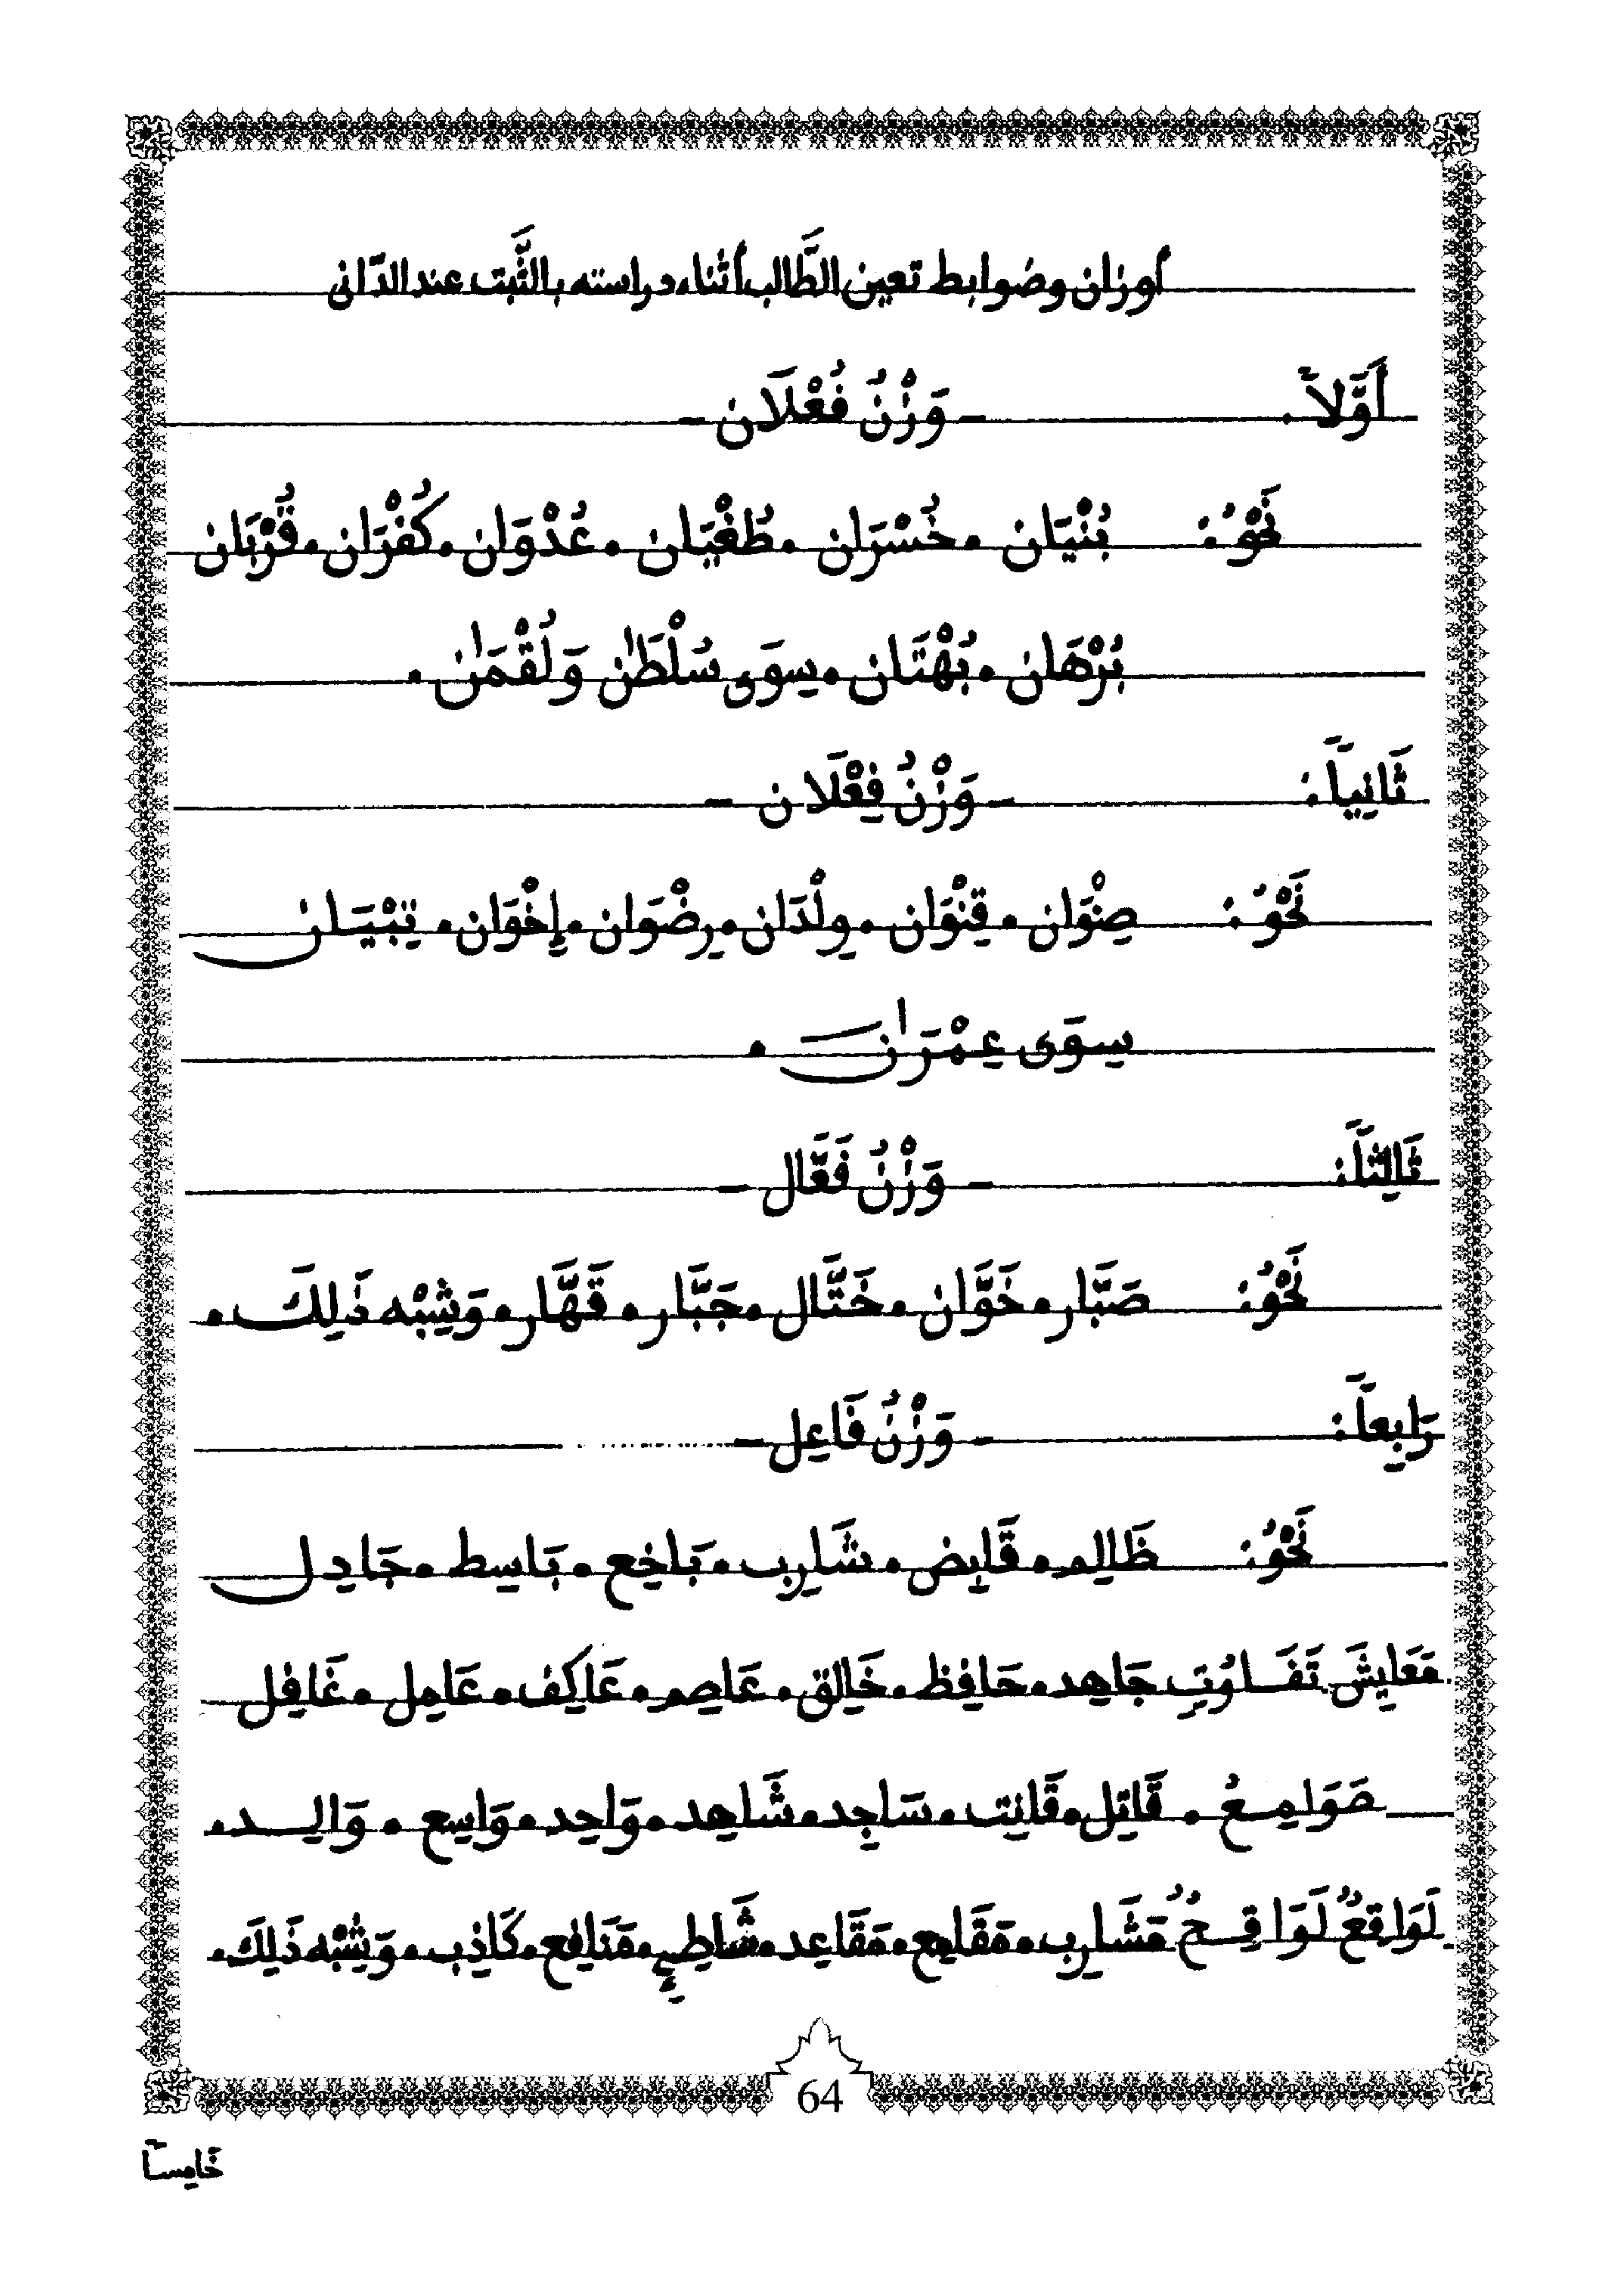 أوزان وضوابط تعين الطَّالب أثناء دراسته بالثَّبت عند الدّانى
أَوَّلاً. - وَزْنُ فُعْلَان -
نَحْوُ: بُنْيَان . خُسْرَان . طُغْيَان . عُدْوَان . كُفْرَان . قُرْبَان
بُرْهَان . بُهْتَان . سِوَى سُلْطَٰن وَلُقْمَٰن .
ثَانِياً: - وَزْنُ فِعْلَان -
نَحْوُ: صِنْوَان . قِنْوَان . وِلْدَان . رِضْوَان . إِخْوَان . تِبْيَـان
سِوَى عِمْرَٰن .
ثَالِثاً: - وَزْنُ فَعَّال -
نَحْوُ: صَبَّار . خَوَّان . خَتَّال . جَبَّار . قَهَّار . وَشِبْه ذَٰلِكَ .
رَابِعاً: - وَزْنُ فَاعِل -
نَحْوُ: ظَالِم . قَابِض . شَارِب . بَاخِع . بَاسِط . جَادِل
مَعَايِشَ تَفَـاوُتٍ جَاهِد . حَافِظ . خَالِق . عَاصِم . عَاكِف . عَامِل . غَافِل
صَوَامِـعُ . قَاتِل . قَانِت . سَاجِد . شَاهِد . وَاحِد . وَاسِع . وَالِـد .
لَوَاقِعٌ لَوَاقِـحُ مَشَارِب . مَقَامِع . مَقَاعِد . شَاطِئِ . مَنَافِع . كَاذِب . وَشِبْه ذَلِكَ .
64
خَامِساً